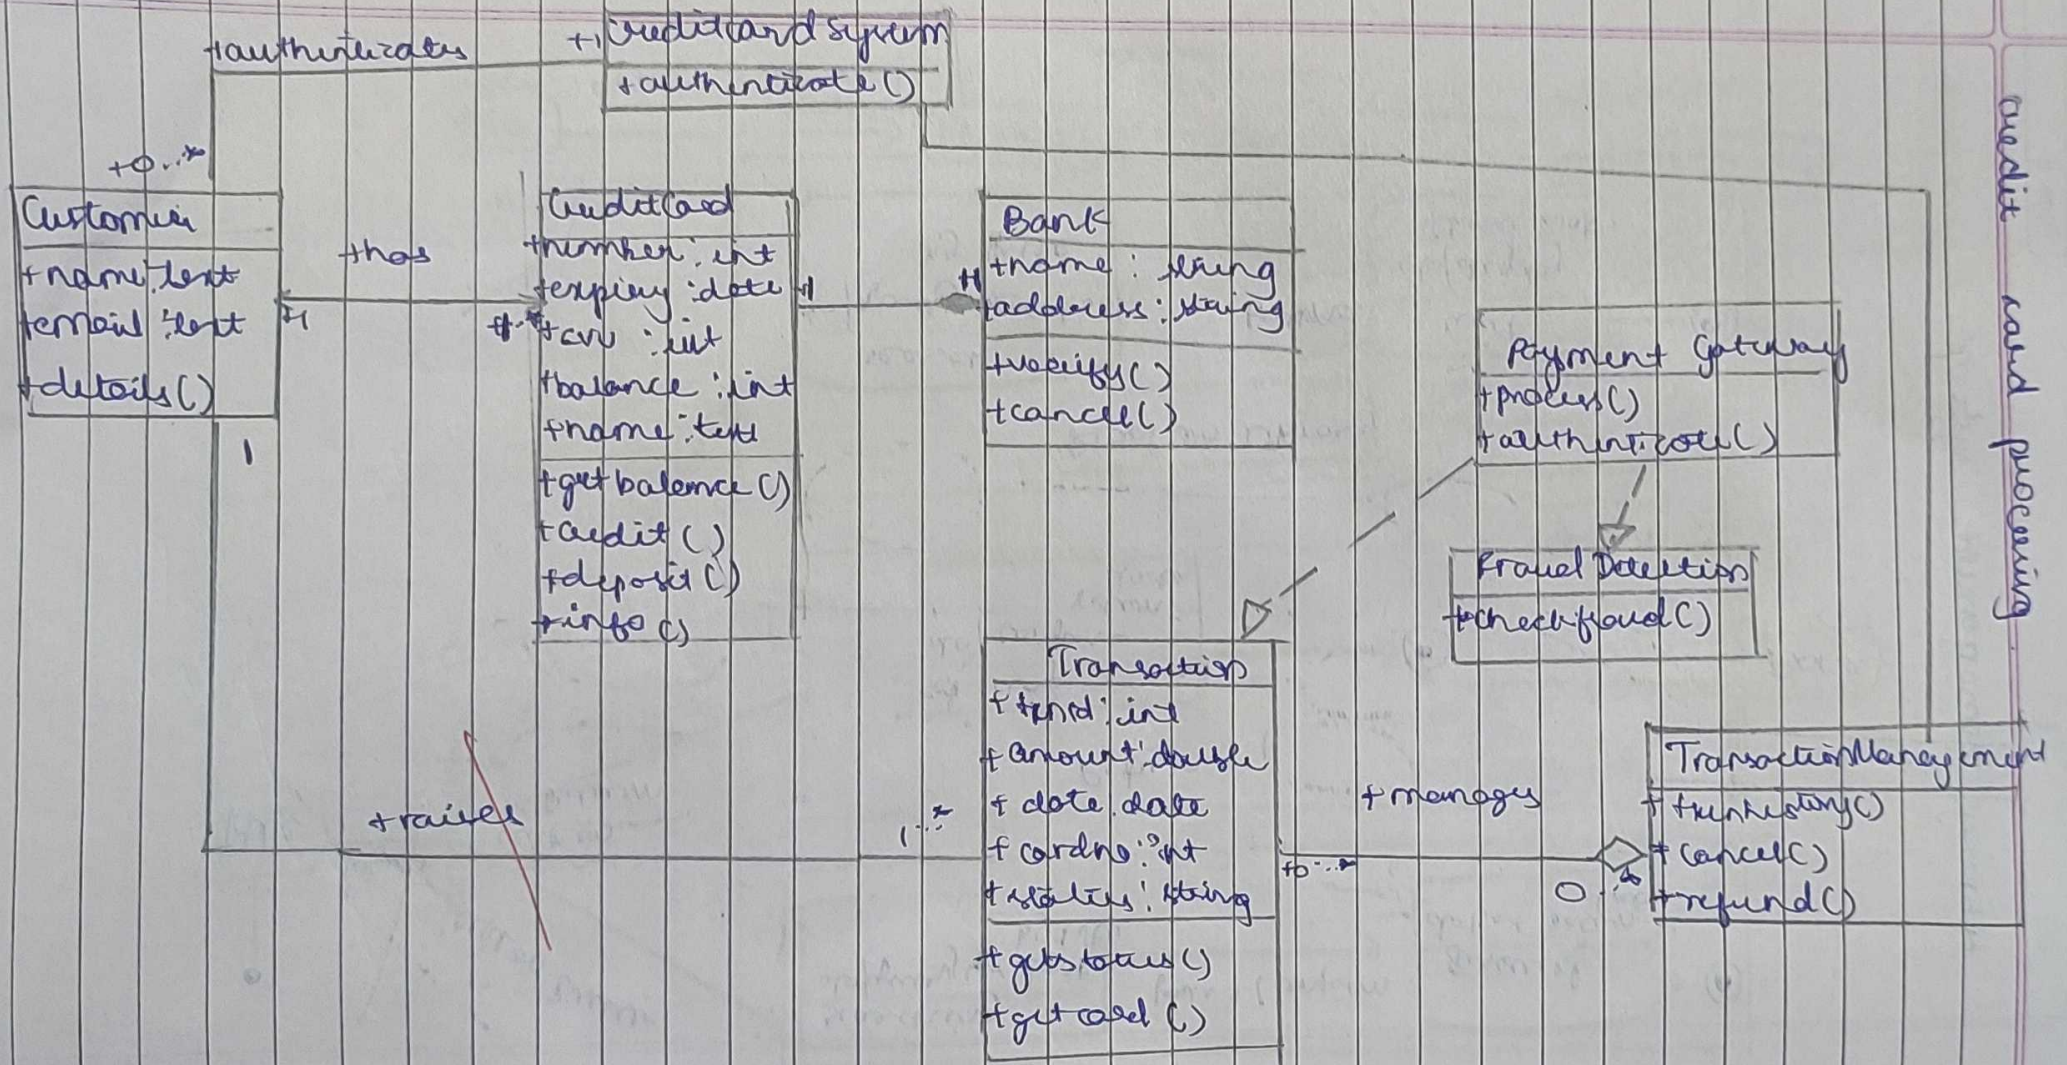 +authenticates
+1
creditcard system
+authenticate()
+0..*
Customer
+name:text
+email:text
+details()
+has
+1
1
CreditCard
+number:int
+expiry:date
+cvv:int
+balance:int
+name:text
+getbalance()
+credit()
+deposit()
+info()
+1
+1
Bank
+name: string
+address: string
+verify()
+cancel()
Payment Gateway
+process()
+authenticate()
Fraud Detection
+checkfraud()
Transaction
+txnid:int
+amount:double
+date:date
+cardno:int
+status:string
+getstatus()
+getcard()
+raises
1..*
+manages
+0..*
0..*
TransactionManagement
+txnhistory()
+cancel()
+refund()
credit card processing